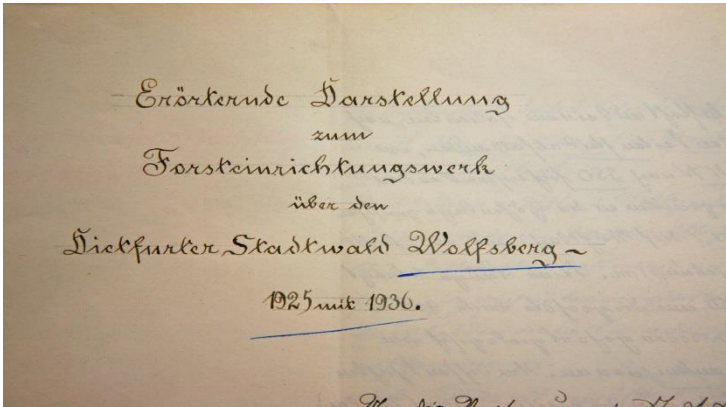 Erörternde Darstellung
zum
Forsteinrichtungswerk
über den
Dietfurter Stadtwald Wolfsberg –
1925 mit 1936.